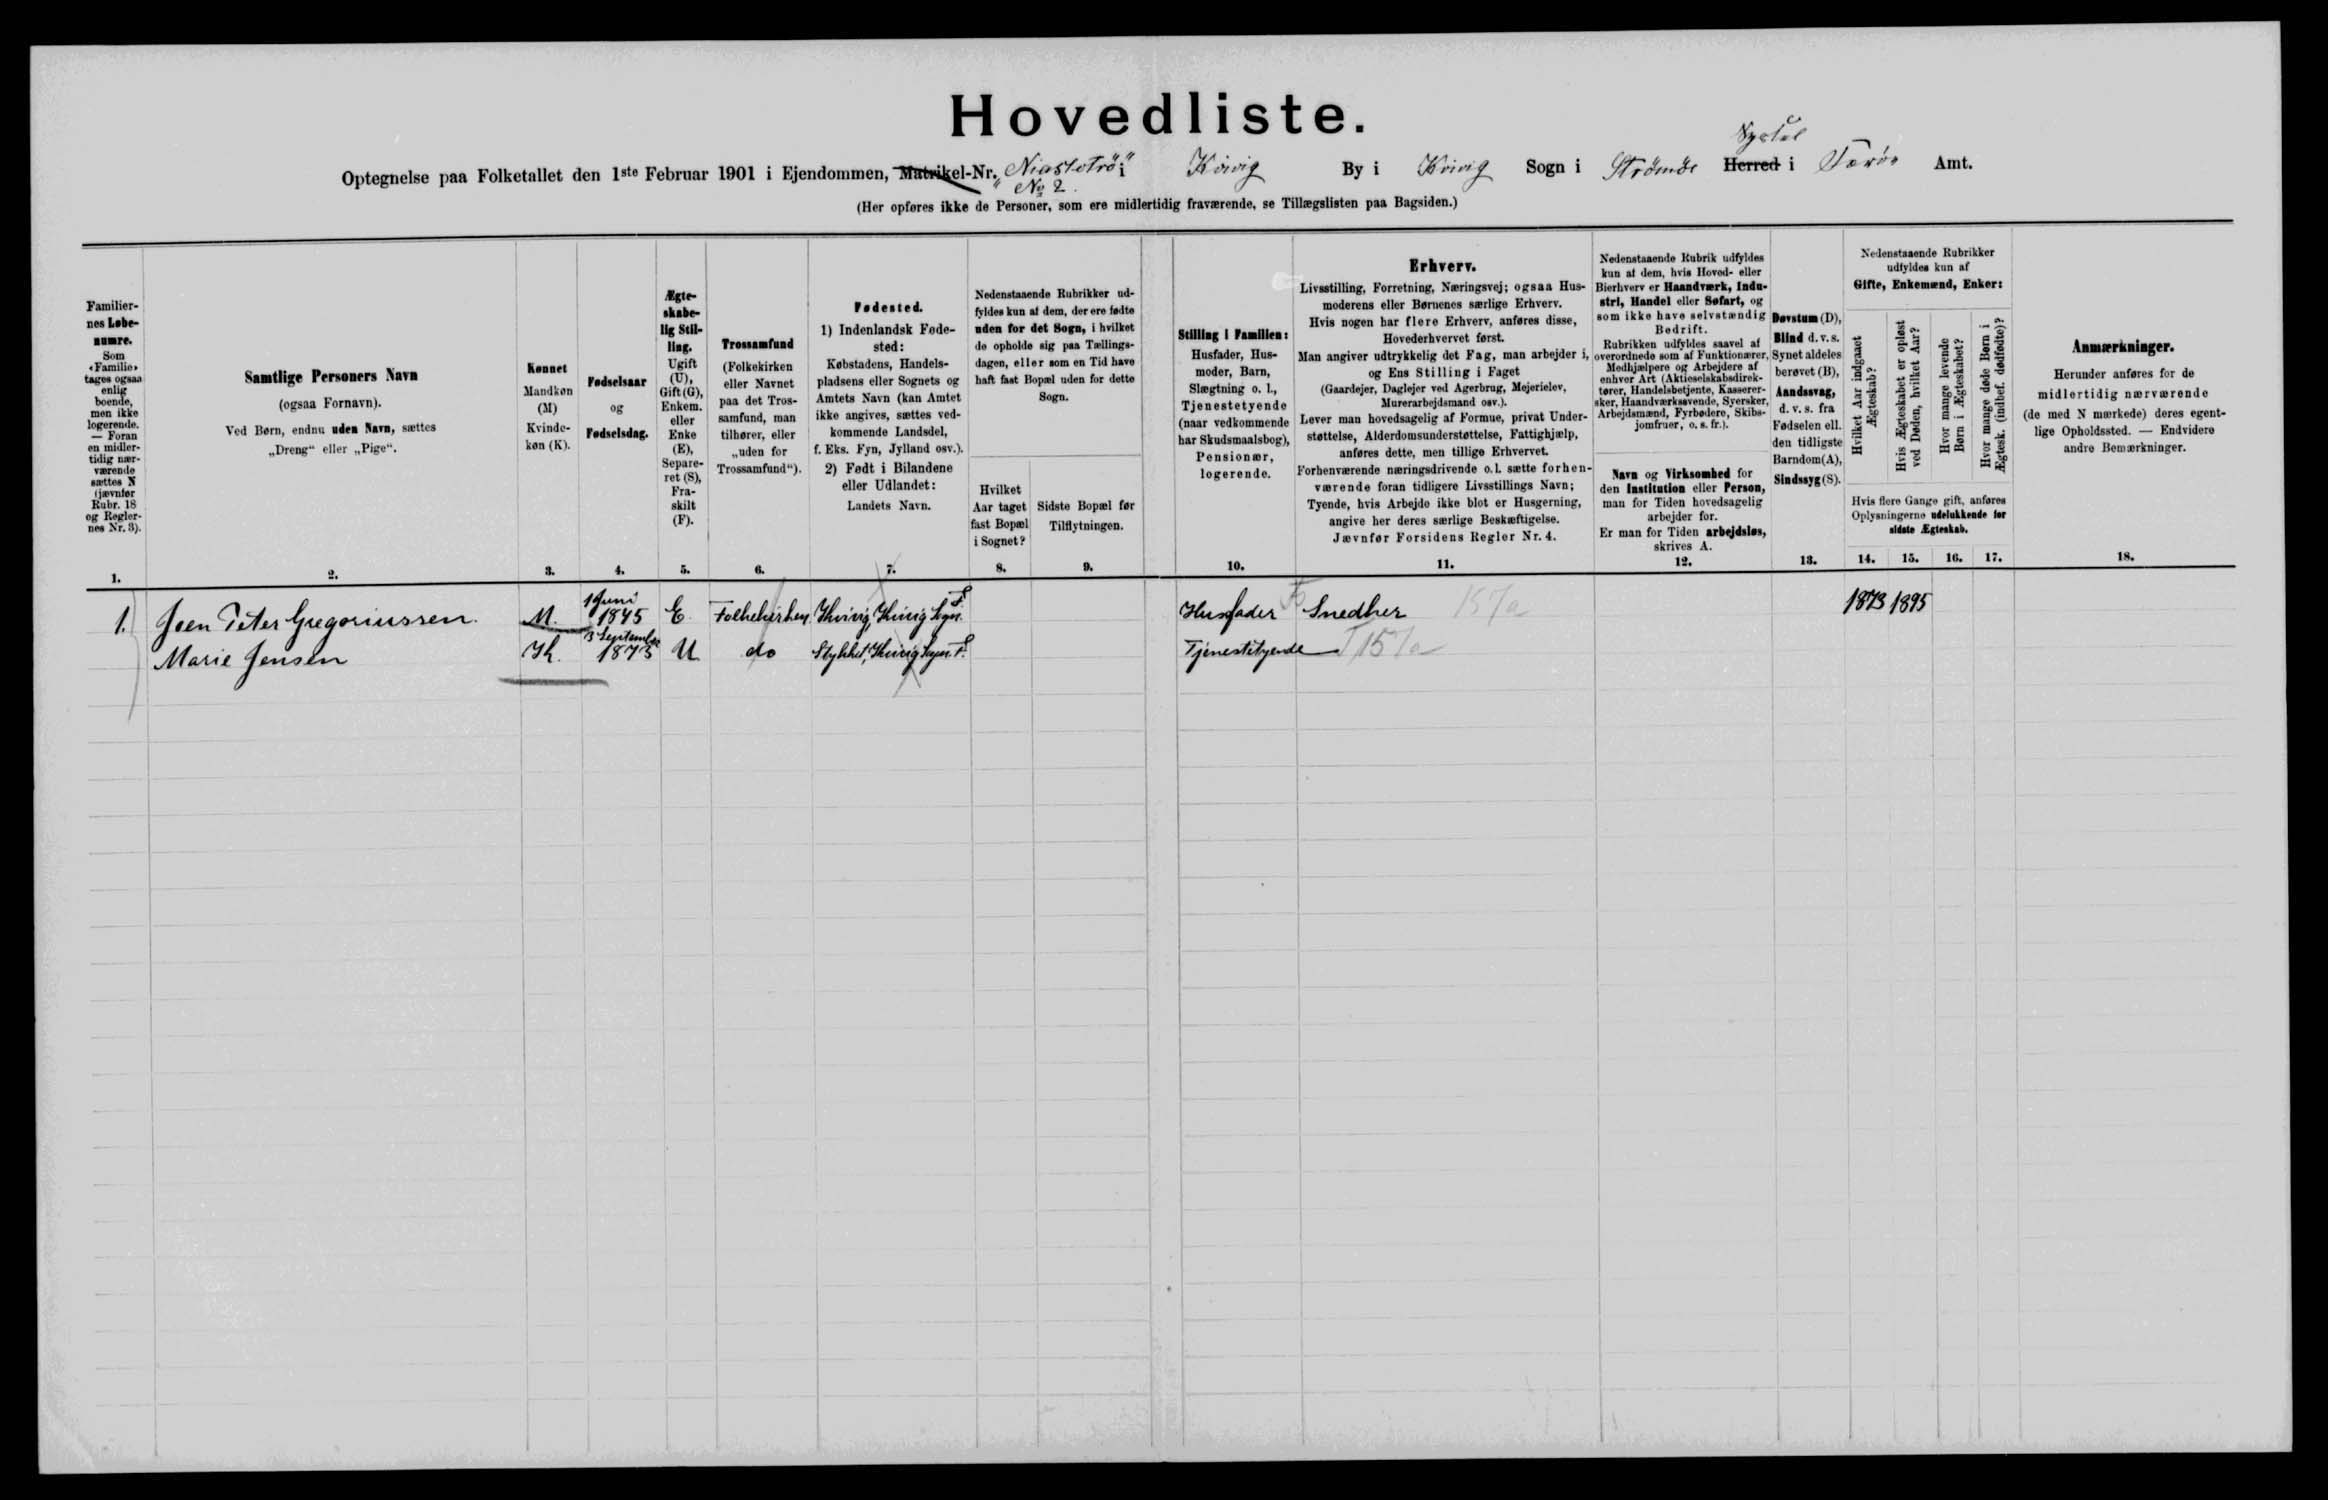 Hovedliste.
Optegnelse paa Folketallet den 1ste Februar 1901 i Ejendommen, Matrikel-Nr. „Niastotrö“ i Kvivig By i Kvivig Sogn i Strömöe Herred i Færöe Amt.
Syssel
No 2.
(Her opføres ikke de Personer, som ere midlertidig fraværende, se Tillægslisten paa Bagsiden.)
Familier-
nes Løbe-
numre.
Som
«Familie»
tages ogsaa
enlig
boende,
men ikke
logerende.
— Foran
en midler-
tidig nær-
værende
sættes N
(jævnfør
Rubr. 18
og Regler-
nes Nr. 3).
1.
Samtlige Personers Navn
(ogsaa Fornavn).
Ved Børn, endnu uden Navn, sættes
„Dreng“ eller „Pige“.
2.
Kønnet
Mandkøn
(M)
Kvinde-
køn (K).
3.
Fødselsaar
og
Fødselsdag.
4.
Ægte-
skabe-
lig Stil-
ling.
Ugift
(U),
Gift (G),
Enkem.
eller
Enke
(E),
Separe-
ret (S),
Fra-
skilt
(F).
5.
Trossamfund
(Folkekirken
eller Navnet
paa det Tros-
samfund, man
tilhører, eller
„uden for
Trossamfund“).
6.
Fødested.
1) Indenlandsk Føde-
sted:
Købstadens, Handels-
pladsens eller Sognets og
Amtets Navn (kan Amtet
ikke angives, sættes ved-
kommende Landsdel,
f. Eks. Fyn, Jylland osv.).
2) Født i Bilandene
eller Udlandet:
Landets Navn.
7.
Nedenstaaende Rubrikker ud-
fyldes kun af dem, der ere fødte
uden for det Sogn, i hvilket
de opholde sig paa Tællings-
dagen, eller som en Tid have
haft fast Bopæl uden for dette
Sogn.
Hvilket
Aar taget
fast Bopæl
i Sognet?
8.
Sidste Bopæl før
Tilflytningen.
9.
Stilling i Familien:
Husfader, Hus-
moder, Barn,
Slægtning o. l.,
Tjenestetyende
(naar vedkommende
har Skudsmaalsbog),
Pensionær,
logerende.
10.
Erhverv.
Livsstilling, Forretning, Næringsvej; ogsaa Hus-
moderens eller Børnenes særlige Erhverv.
Hvis nogen har flere Erhverv, anføres disse,
Hovederhvervet først.
Man angiver udtrykkelig det Fag, man arbejder i,
og Ens Stilling i Faget
(Gaardejer, Daglejer ved Agerbrug, Mejerielev,
Murerarbejdsmand osv.).
Lever man hovedsagelig af Formue, privat Under-
støttelse, Alderdomsunderstøttelse, Fattighjælp,
anføres dette, men tillige Erhvervet.
Forhenværende næringsdrivende o.l. sætte forhen-
værende foran tidligere Livsstillings Navn;
Tyende, hvis Arbejde ikke blot er Husgerning,
angive her deres særlige Beskæftigelse.
Jævnfør Forsidens Regler Nr. 4.
11.
Nedenstaaende Rubrik udfyldes
kun af dem, hvis Hoved- eller
Bierhverv er Haandværk, Indu-
stri, Handel eller Søfart, og
som ikke have selvstændig
Bedrift.
Rubrikken udfyldes saavel af
overordnede som af Funktionærer,
Medhjælpere og Arbejdere af
enhver Art (Aktieselskabsdirek-
tører, Handelsbetjente, Kasserer-
sker, Haandværkssvende, Syersker,
Arbejdsmænd, Fyrbødere, Skibs-
jomfruer, o. s. fr.).
Navn og Virksomhed for
den Institution eller Person,
man for Tiden hovedsagelig
arbejder for.
Er man for Tiden arbejdsløs,
skrives A.
12.
Døvstum (D),
Blind d. v. s.
Synet aldeles
berøvet (B),
Aandssvag,
d. v. s. fra
Fødselen ell.
den tidligste
Barndom(A),
Sindssyg(S).
13.
Nedenstaaende Rubrikker
udfyldes kun af
Gifte, Enkemænd, Enker:
Hvilket Aar indgaaet
Ægteskab?
Hvis Ægteskabet er opløst
ved Døden, hvilket Aar?
Hvor mange levende
Børn i Ægteskabet?
Hvor mange døde Børn i
Ægtesk. (indbef. dødfødte)?
Hvis flere Gange gift, anføres
Oplysningerne udelukkende for
sidste Ægteskab.
14. 15. 16. 17.
Anmærkninger.
Herunder anføres for de
midlertidig nærværende
(de med N mærkede) deres egent-
lige Opholdssted. — Endvidere
andre Bemærkninger.
18.
1. Joen Peter Gregoriussen. M. 1 Juni 1845 E. Folkekirken Kvivig, Kvivig Sogn. F. Husfader Snedker 15/a 1873 1895
Marie Jensen K. 3 September 1873 U do Stykket, Kvivig Sogn. F. Tjenestetyende T 15/a